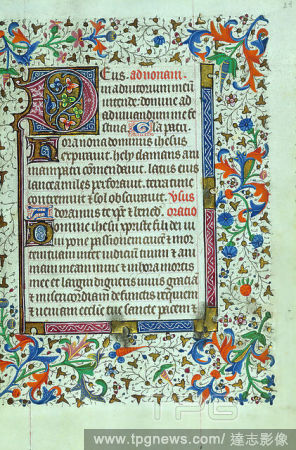 24
Deus. ad nonam.
in adiutorium meū
intende. domine ad
adiuvandum me fe
stina. Gl'a patri
Hora nona dominus ihesus
expiravit. hely clamans ani
mam patri cōmendavit. latus eius
lancea miles perforavit. terra tunc
contremuit et sol obscuravit. v'sus
Adoramus te xp̄e et bened. oratio
Domine ihesu xpriste fili dei vi
vi pone passionem crucē et mor
tuam inter iudicium tuum et a
nimam meam nunc et in hora mortis
mee et largiri digneris vivis gratiā
et misericordiam defunctis requiem
et veniam ecclesie tue sancte pacem et
TPG
www.tpgnews.com / 達志影像